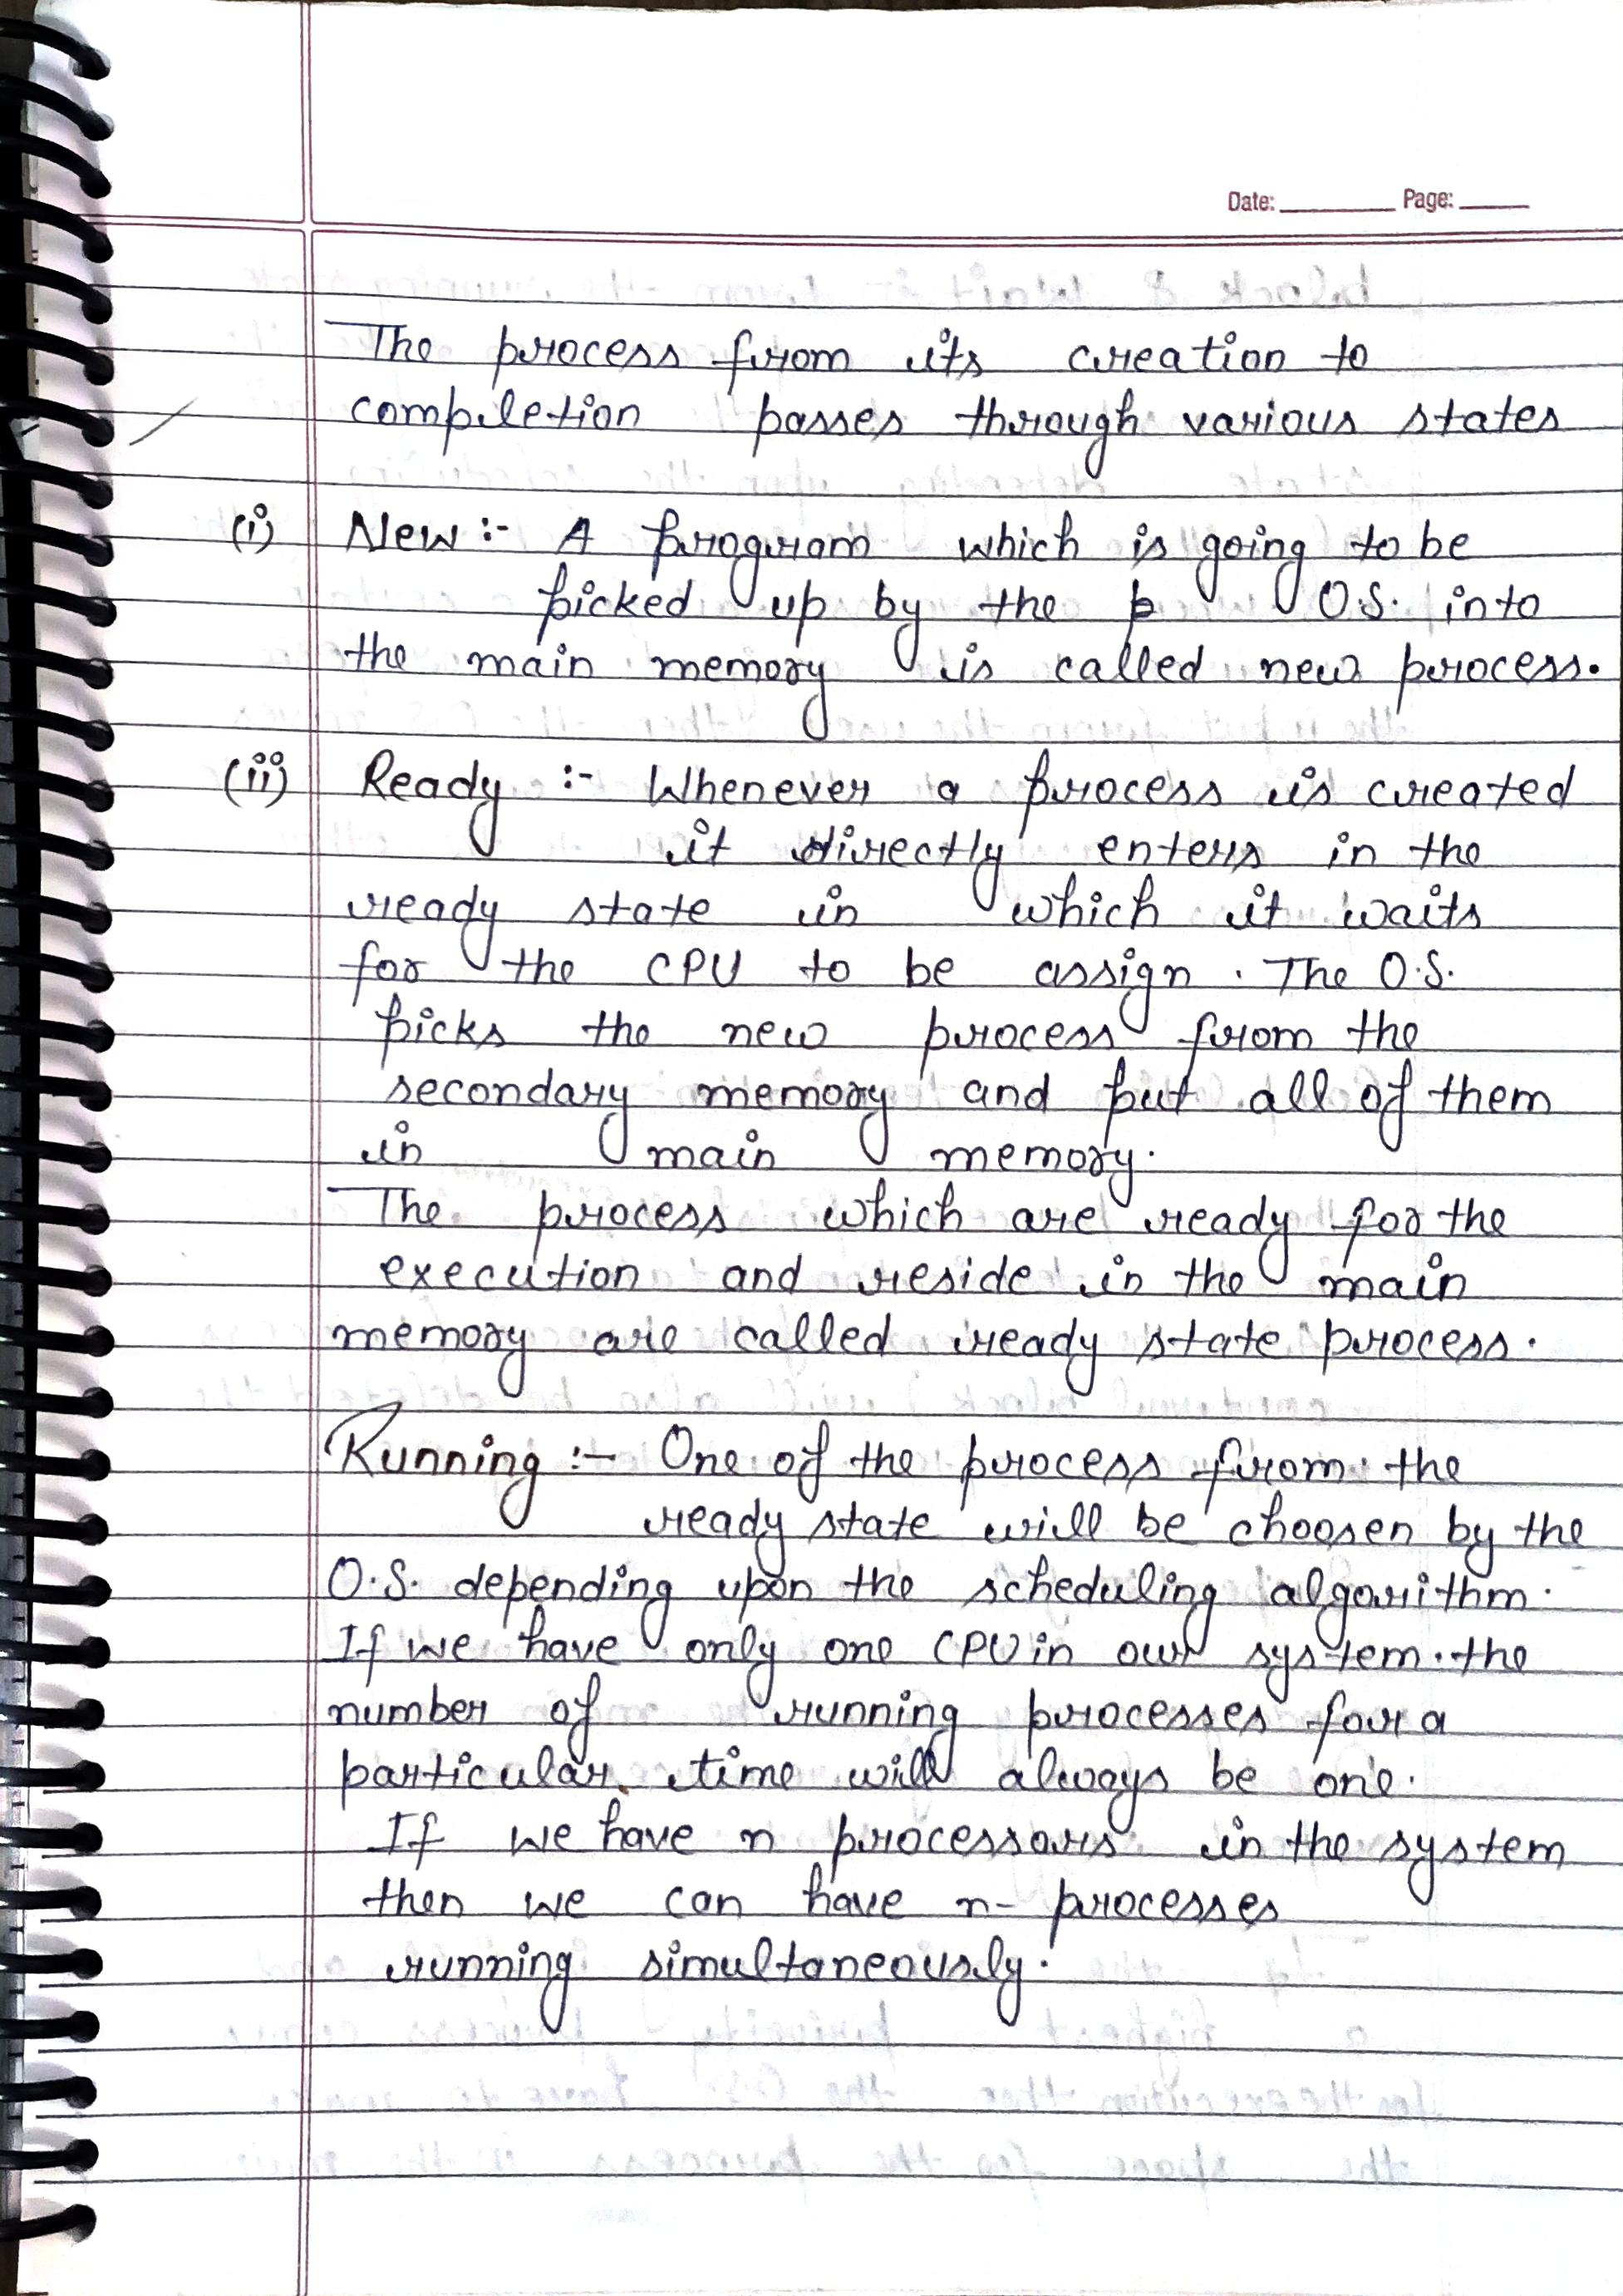 Date: Page:
The process from its creation to
completion passes through various states
(i) New :- A program which is going to be
picked up by the p O.S. into
the main memory is called new process.
(ii) Ready :- Whenever a process is created
it directly enters in the
ready state in which it waits
for the CPU to be assign. The O.S.
picks the new process from the
secondary memory and put all of them
in main memory.
The process which are ready for the
execution and reside in the main
memory are called ready state process.
Running :- One of the process from the
ready state will be choosen by the
O.S. depending upon the scheduling algorithm.
If we have only one CPU in our system. the
number of running processes for a
particular time will always be one.
If we have n processors in the system
then we can have n- processes
running simultaneously.